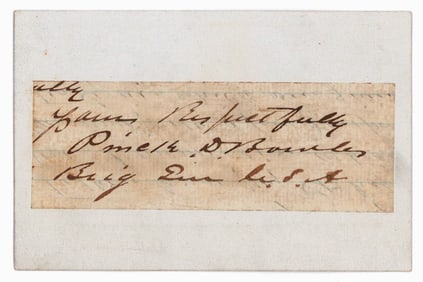 ally
yours Respectfully
Pinck. D. Bowles
Brig Gen C. S. A